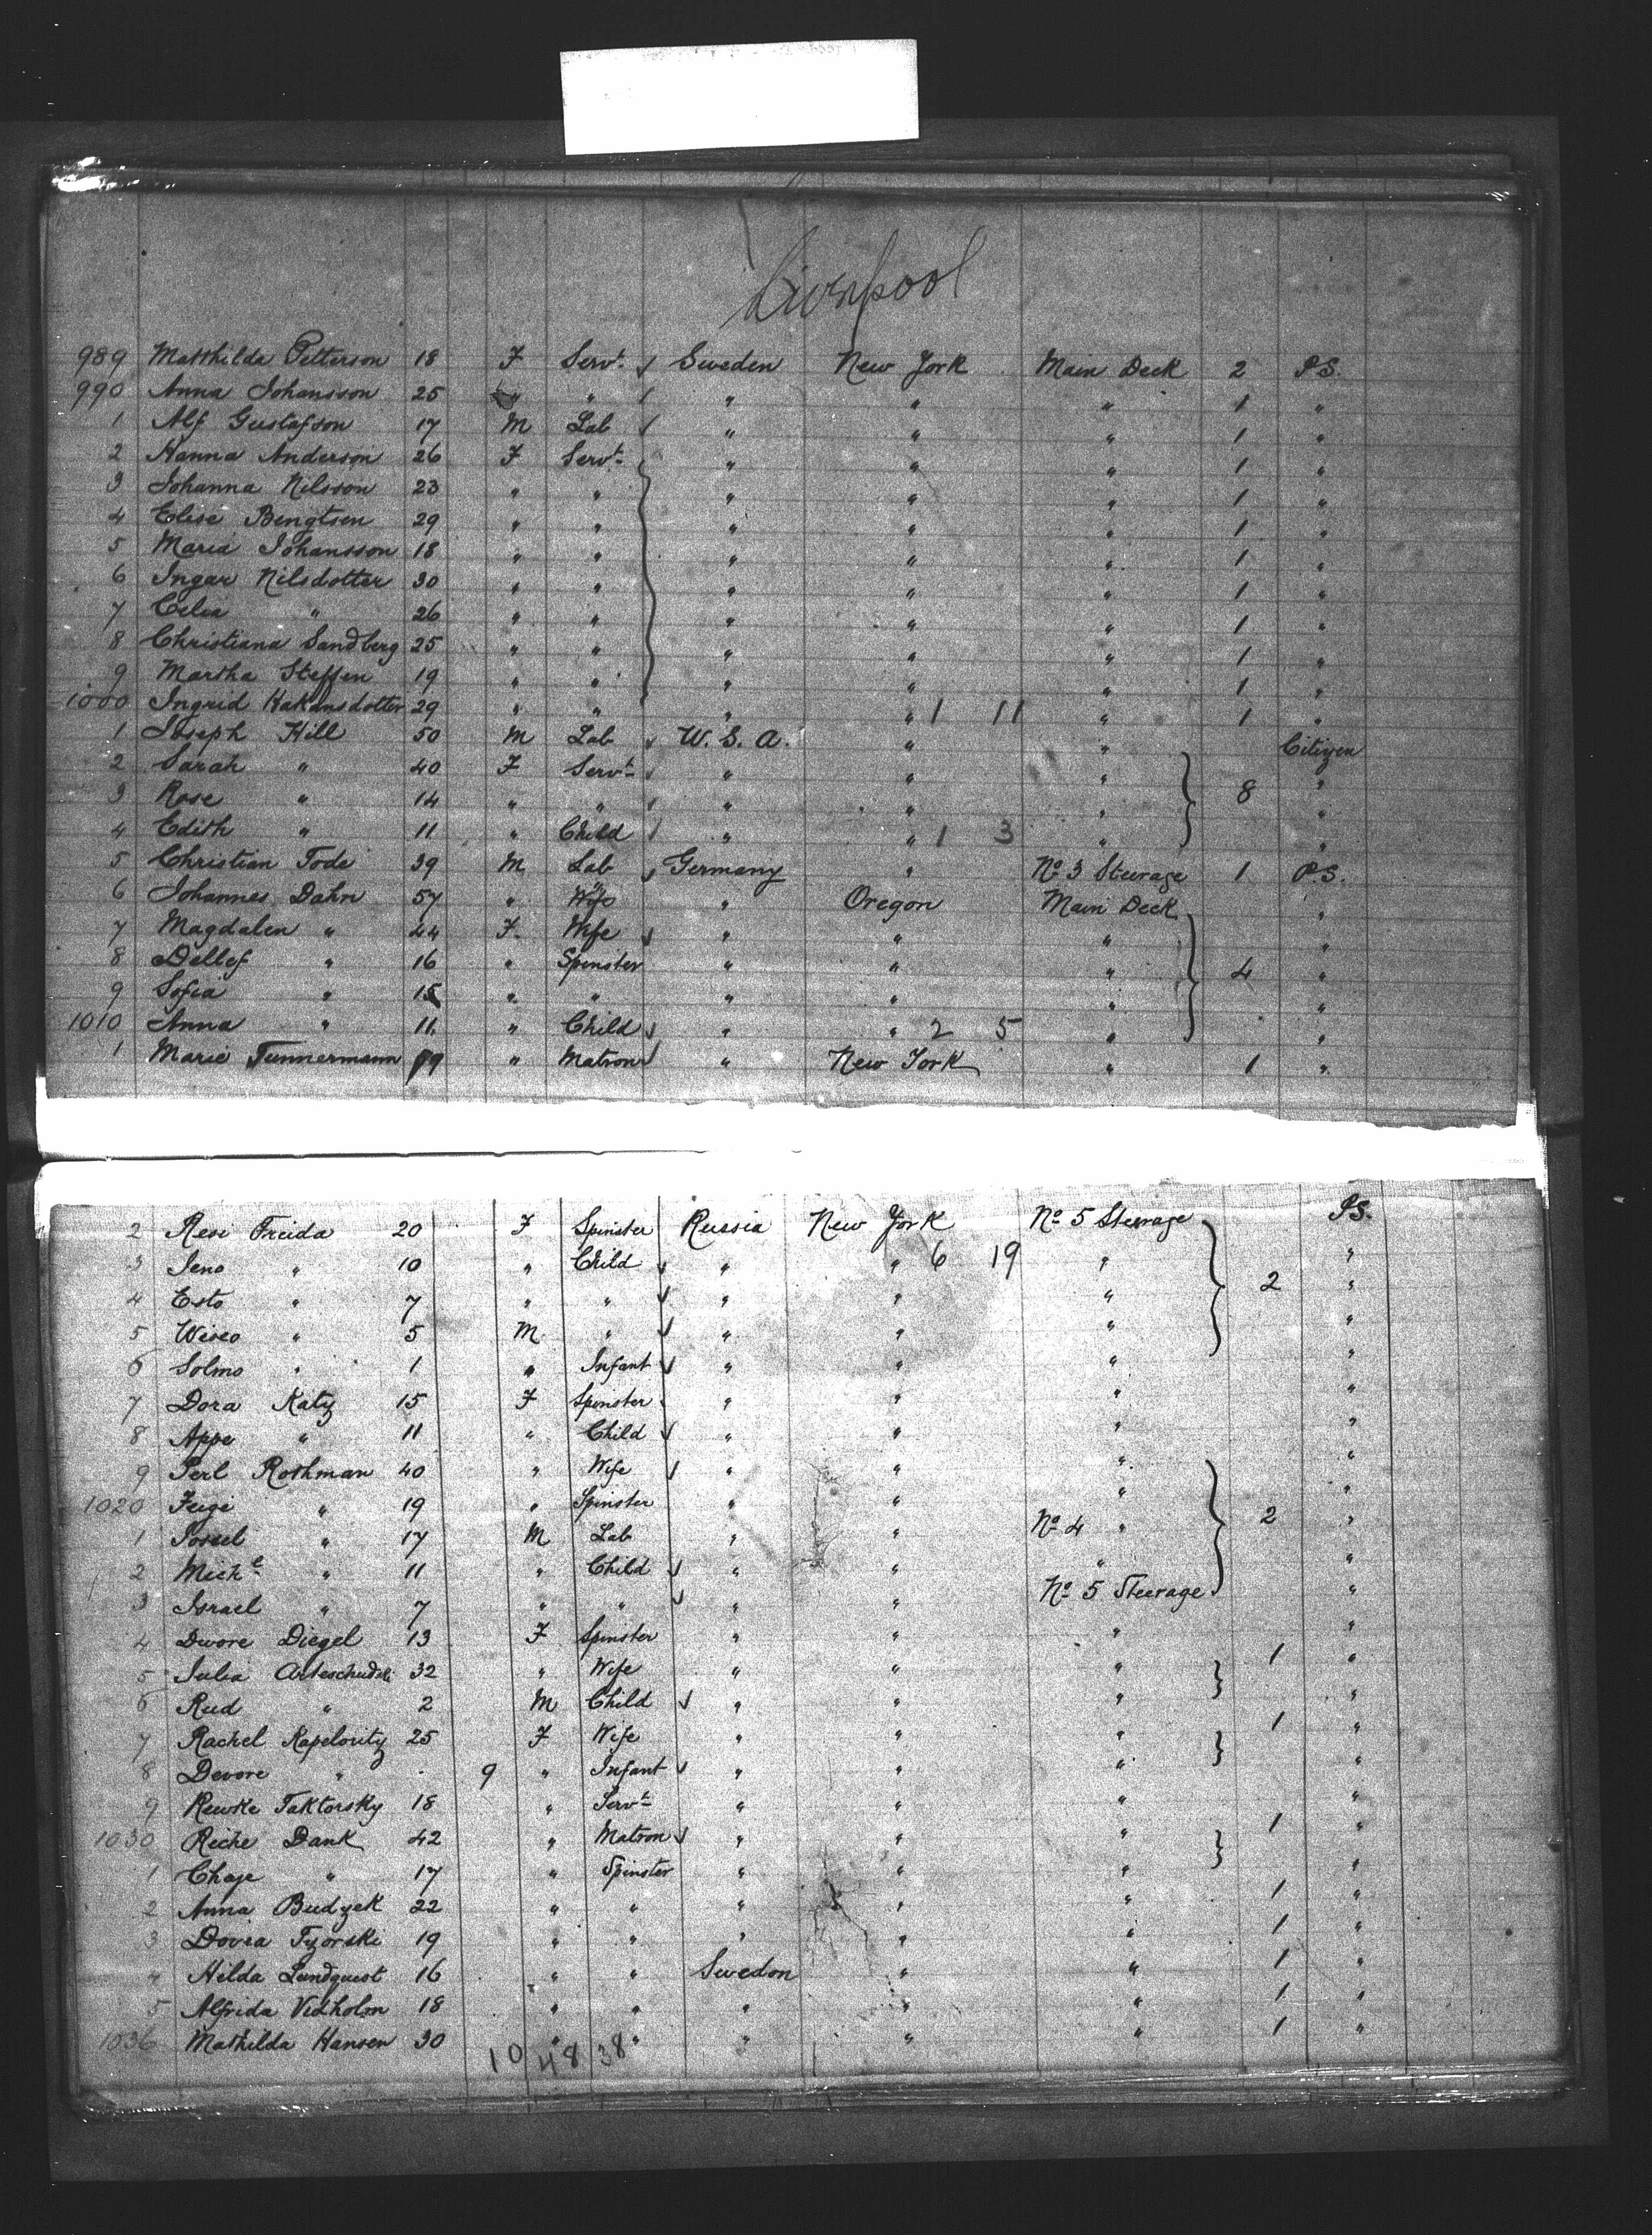 Liverpool
989 Matthilda Petterson 18 F Servt Sweden New York Main Deck 2 P.S.
990 Anna Johansson 25 " " " " " 1 "
1 Alf Gustafson 17 M Lab " " " 1 "
2 Hanna Anderson 26 F Servt " " " 1 "
3 Johanna Nilsson 23 " " " " " 1 "
4 Elise Bengtsen 29 " " " " " 1 "
5 Maria Johansson 18 " " " " " 1 "
6 Ingar Nilsdotter 30 " " " " " 1 "
7 Celia " 26 " " " " " 1 "
8 Christiana Sandberg 25 " " " " " 1 "
9 Martha Steffen 19 " " " " " 1 "
1000 Ingrid Hakansdotter 29 " " " " 1 11 " 1 "
1 Joseph Hill 50 M Lab U.S.A. " " Citizen
2 Sarah " 40 F Servt " " " "
3 Rose " 14 " " " " " 8 "
4 Edith " 11 " Child " " 1 3 " "
5 Christian Tode 39 M Lab Germany " No 3 Steerage 1 P.S.
6 Johannes Dahn 57 " " Oregon Main Deck "
7 Magdalen " 44 F Wife " " " "
8 Detlef " 16 " Spinster " " " 4 "
9 Sofia " 15 " " " " " "
1010 Anna " 11 " Child " " 2 5 " "
1 Marie Tunnermann 79 " Matron " New York " 1 "
2 Resi Freida 20 F Spinster Russia New York No 5 Steerage P.S.
3 Jeno " 10 " Child " " 6 19 " "
4 Esto " 7 " " " " " 2 "
5 Wiseo " 5 M " " " " "
6 Solmo " 1 " Infant " " " "
7 Dora Katz 15 F Spinster " " " "
8 Appe " 11 " Child " " " "
9 Perl Rothman 40 " Wife " " " "
1020 Feige " 19 " Spinster " " " "
1 Jossel " 17 M Lab " " No 4 " 2 "
2 Michl " 11 " Child " " " "
3 Israel " 7 " " " " No 5 Steerage "
4 Dwore Diegel 13 F Spinster " " " 1 "
5 Julia 32 " Wife " " " "
6 Rud " 2 M Child " " " 1 "
7 Rachel Kapelovitz 25 F Wife " " " "
8 Devore " 9 " Infant " " " "
9 Rewke Taktorsky 18 " Servt " " " 1 "
1030 Reche Dank 42 " Matron " " " "
1 Chaje " 17 " Spinster " " " "
2 Anna Budzek 22 " " " " " 1 "
3 Dovra Tyzorski 19 " " " " " 1 "
4 Hilda Lundquest 16 " " Sweden " " 1 "
5 Alfrida Vidholm 18 " " " " " 1 "
1036 Mathilda Hansen 30 " " " " " 1 "
10 48 38